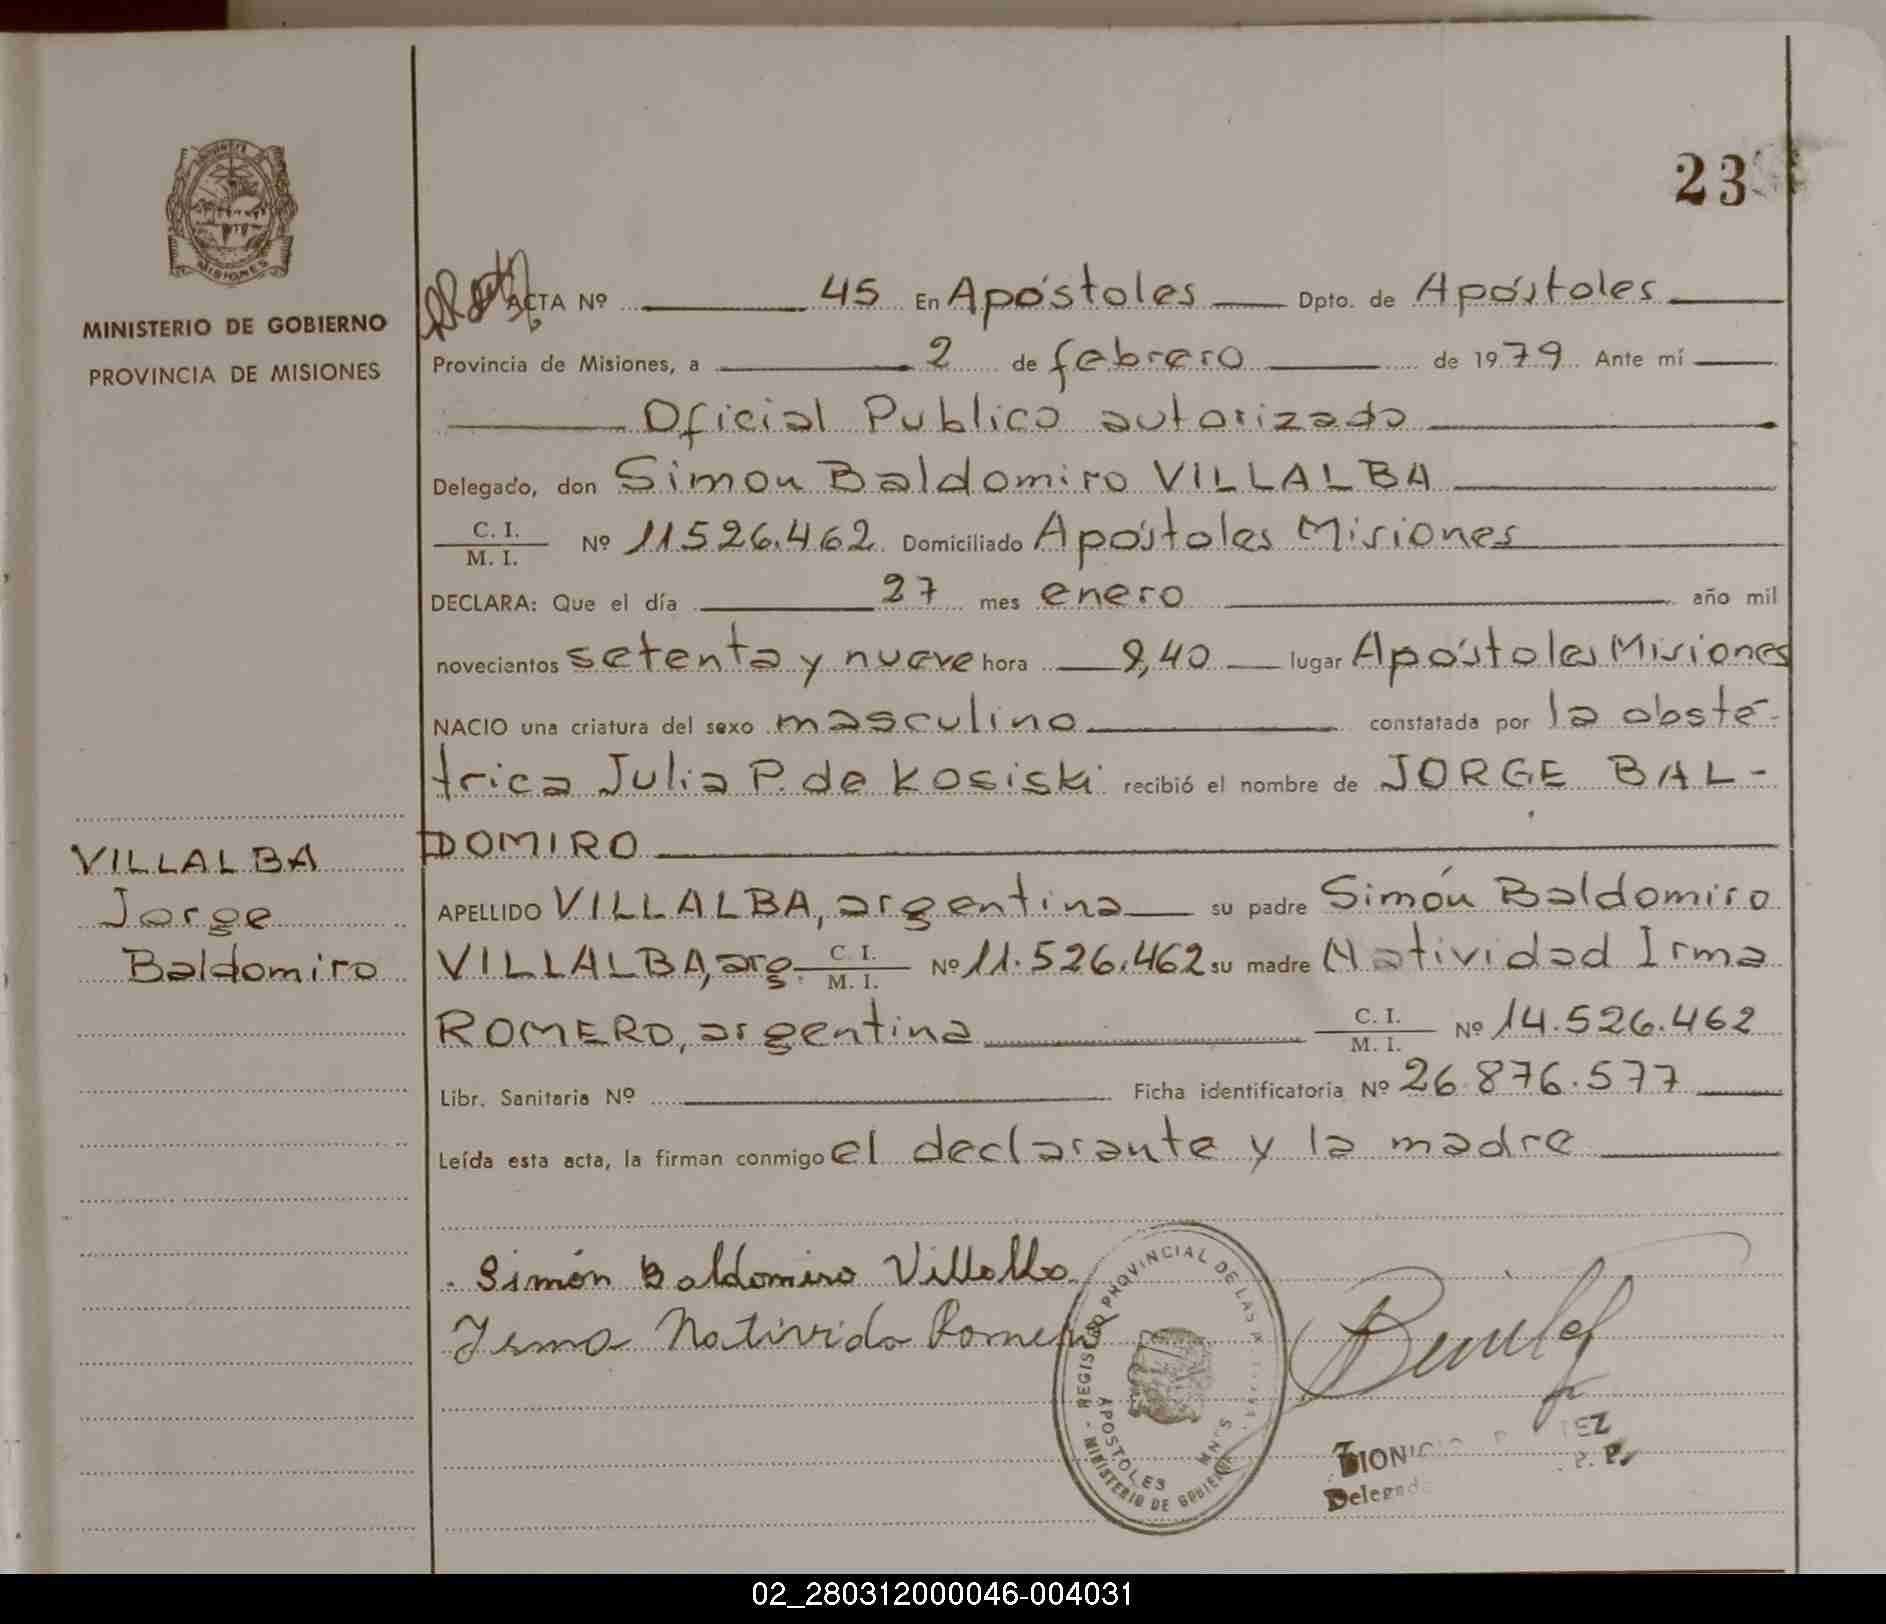 23
MINISTERIO DE GOBIERNO
PROVINCIA DE MISIONES
VILLALBA
Jorge
Baldomiro
ACTA Nº 45 En Apóstoles Dpto. de Apóstoles
Provincia de Misiones, a 2 de febrero de 1979 Ante mí
Oficial Publico autorizado
Delegado, don Simon Baldomiro VILLALBA
C. I. / M. I. Nº 11526.462 Domiciliado Apóstoles Misiones
DECLARA: Que el día 27 mes enero año mil
novecientos setenta y nueve hora 9,40 lugar Apóstoles Misiones
NACIO una criatura del sexo masculino constatada por la obsté-
trica Julia P. de Kosiski recibió el nombre de JORGE BAL-
DOMIRO
APELLIDO VILLALBA, argentina su padre Simón Baldomiro
VILLALBA, arg. C. I. / M. I. Nº 11.526.462 su madre Natividad Irma
ROMERO, argentina C. I. / M. I. Nº 14.526.462
Libr. Sanitaria Nº Ficha identificatoria Nº 26.876.577
Leída esta acta, la firman conmigo el declarante y la madre
Simón Baldomiro Villalba
Irma Nativida Romero
REGISTRO PROVINCIAL DE LAS
APOSTOLES MNES
MINISTERIO DE GOBIERNO
Delegado
02_280312000046-004031